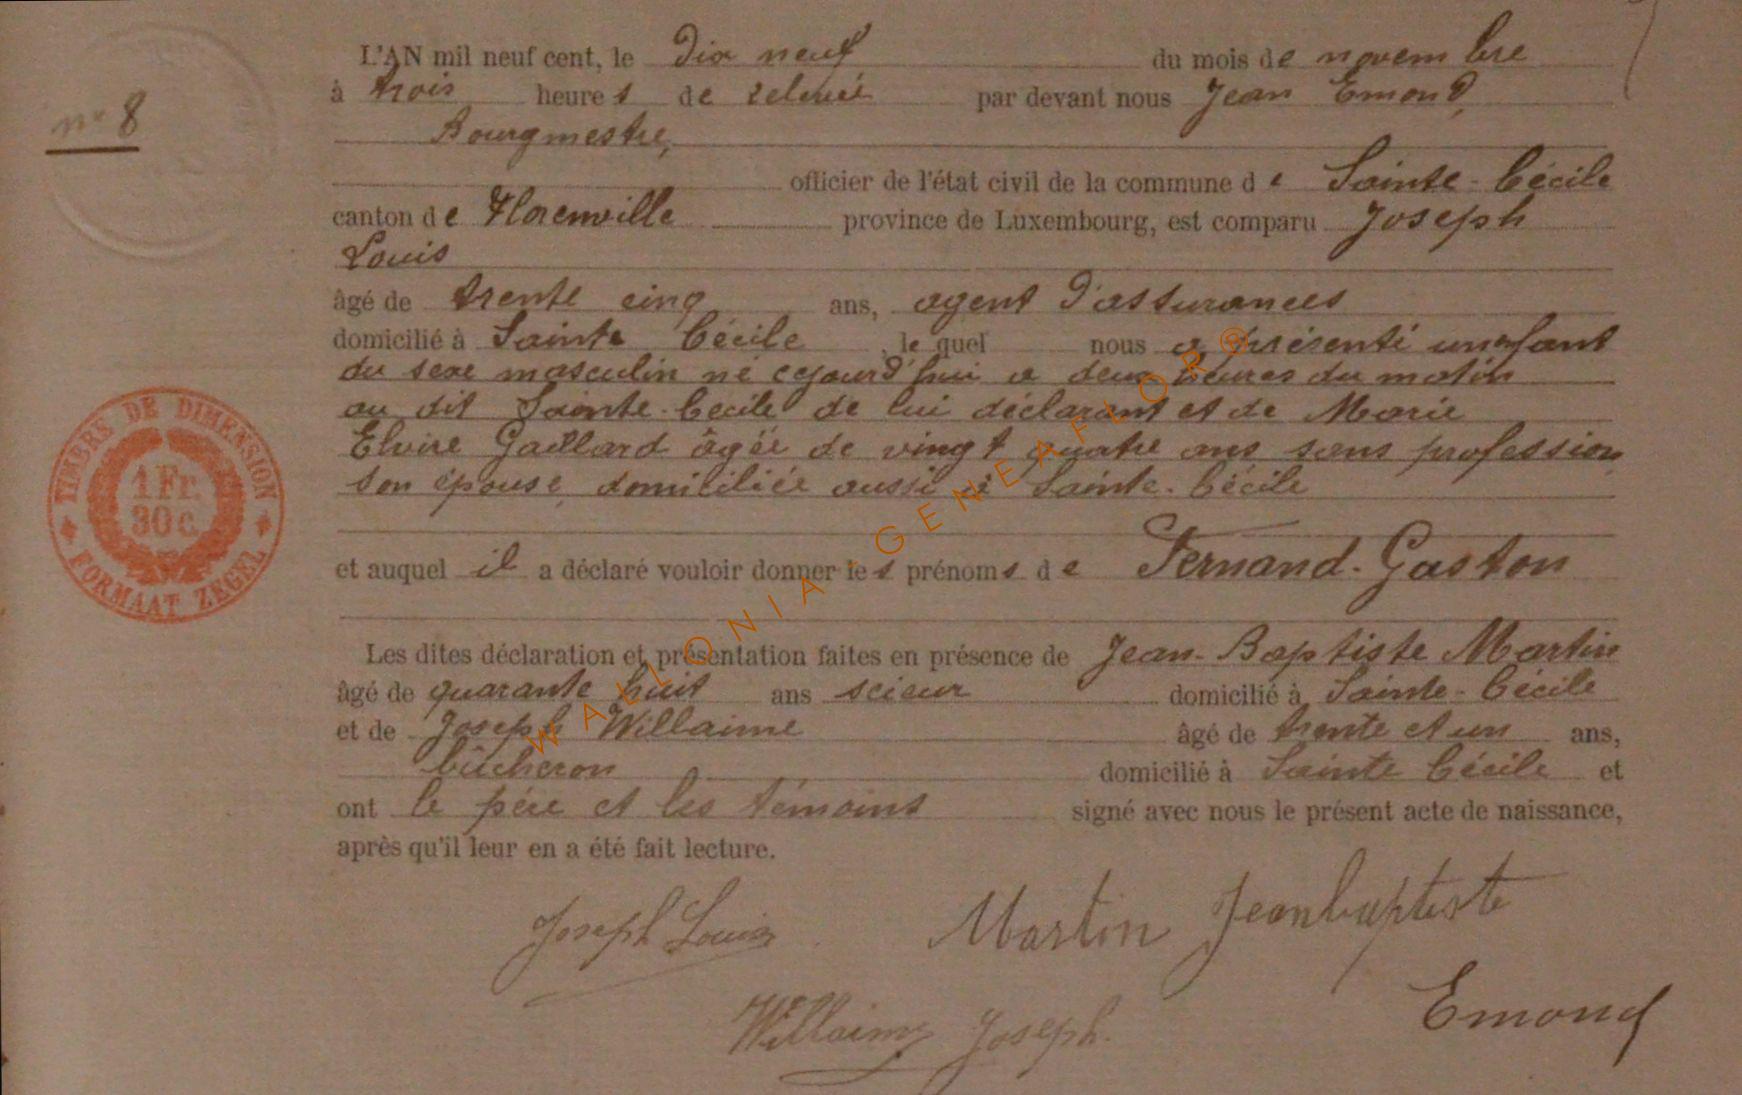 L'AN mil neuf cent, le dix neuf du mois de novembre
à trois heures de relevée par devant nous Jean Emond,
n° 8
Bourgmestre,
officier de l'état civil de la commune de Sainte-Cécile
canton de Florenville province de Luxembourg, est comparu Joseph
Louis
âgé de trente cinq ans, agent d'assurances
domicilié à Sainte Cécile, le quel nous a présenté un enfant
du sexe masculin né cejourd'hui a deux heures du matin
au dit Sainte-Cécile de lui déclarant et de Marie
Elvire Gaillard âgée de vingt quatre ans sans profession,
son épouse, domiciliée aussi à Sainte-Cécile
et auquel il a déclaré vouloir donner les prénoms de Fernand-Gaston
Les dites déclaration et présentation faites en présence de Jean-Baptiste Martin
âgé de quarante huit ans scieur domicilié à Sainte-Cécile
et de Joseph Willaime âgé de trente et un ans,
bûcheron domicilié à Sainte Cécile et
ont le père et les témoins signé avec nous le présent acte de naissance,
après qu'il leur en a été fait lecture.
Joseph Louis Martin Jeanbaptiste
Willaime Joseph. Emond
TIMBRE DE DIMENSION
1 Fr.
30 c.
FORMAAT ZEGEL
WALLONIA-GENEAFLOR®